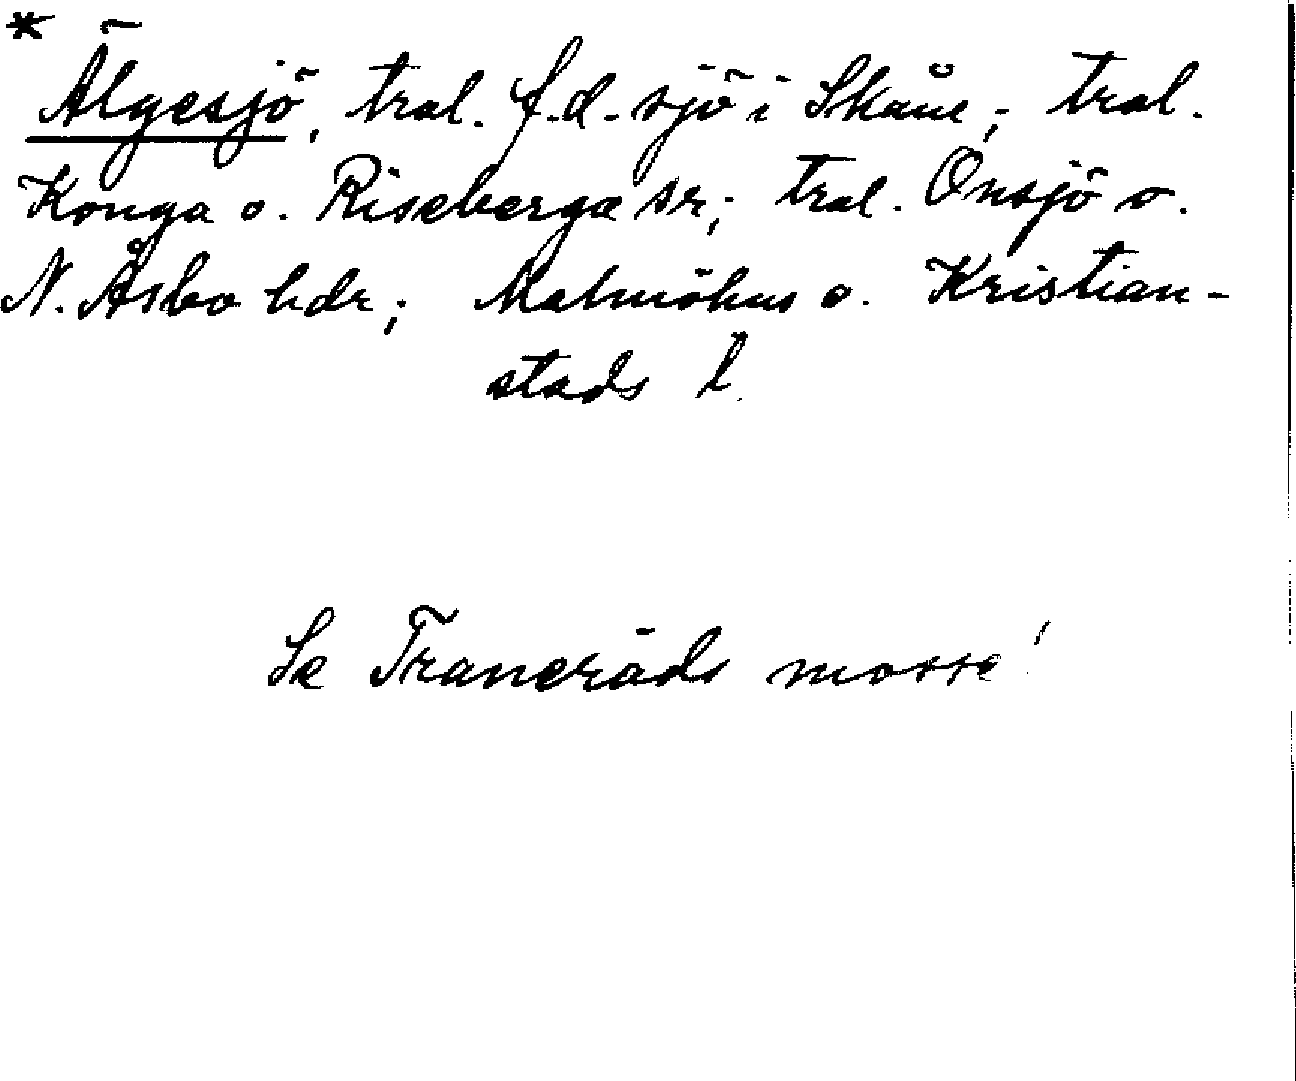 *
Älgesjö, tral. f.d. sjö i Skåne; tral.
Konga o. Riseberga sr; tral. Onsjö o.
N. Åsbo hdr; Malmöhus o. Kristian-
stads l.
Se Traneröds mosse!